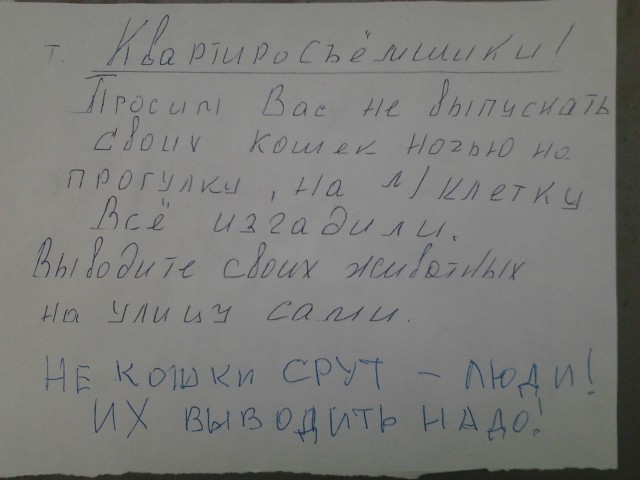 т. Квартиросъёмшики!
Просим Вас не выпускать
своих кошек ночью на
прогулку, на л/клетку
Всё изгадили.
Выводите своих животных
на улицу сами.
НЕ КОШКИ СРУТ – ЛЮДИ!
ИХ ВЫВОДИТЬ НАДО!